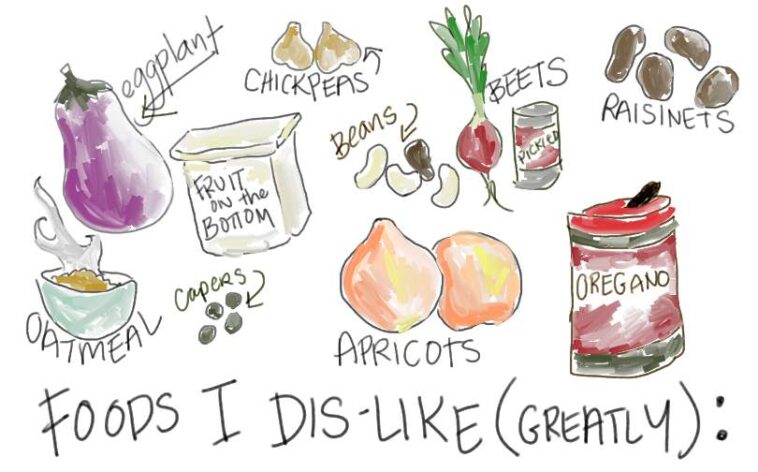 eggplant
CHICKPEAS
BEETS
PICKLED
RAISINETS
Beans
FRUIT
ON the
BOTTOM
OATMEAL
Capers
APRICOTS
OREGANO
FOODS I DIS-LIKE (GREATLY):